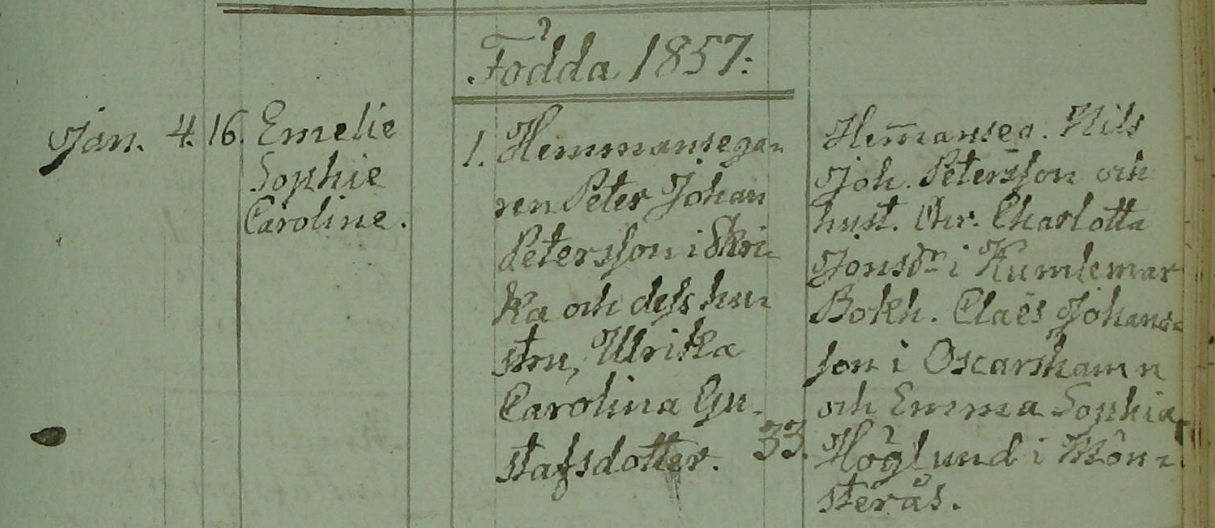 Födda 1857.
Jan. 4. 16. Emelie
Sophie
Caroline.
1. Hemmansega-
ren Peter Johan
Petersson i Skri-
ka och dess hu-
stru, Ulrika
Carolina Gu-
stafsdotter. 33.
Hem̄anseg. Nils
Joh. Petersson och
hust. Chr. Charlotta
Jonsdr i Humlemar
Bokh. Claës Johans-
son i Oscarshamn
och Emma Sophia
Höglund i Möns-
terås.